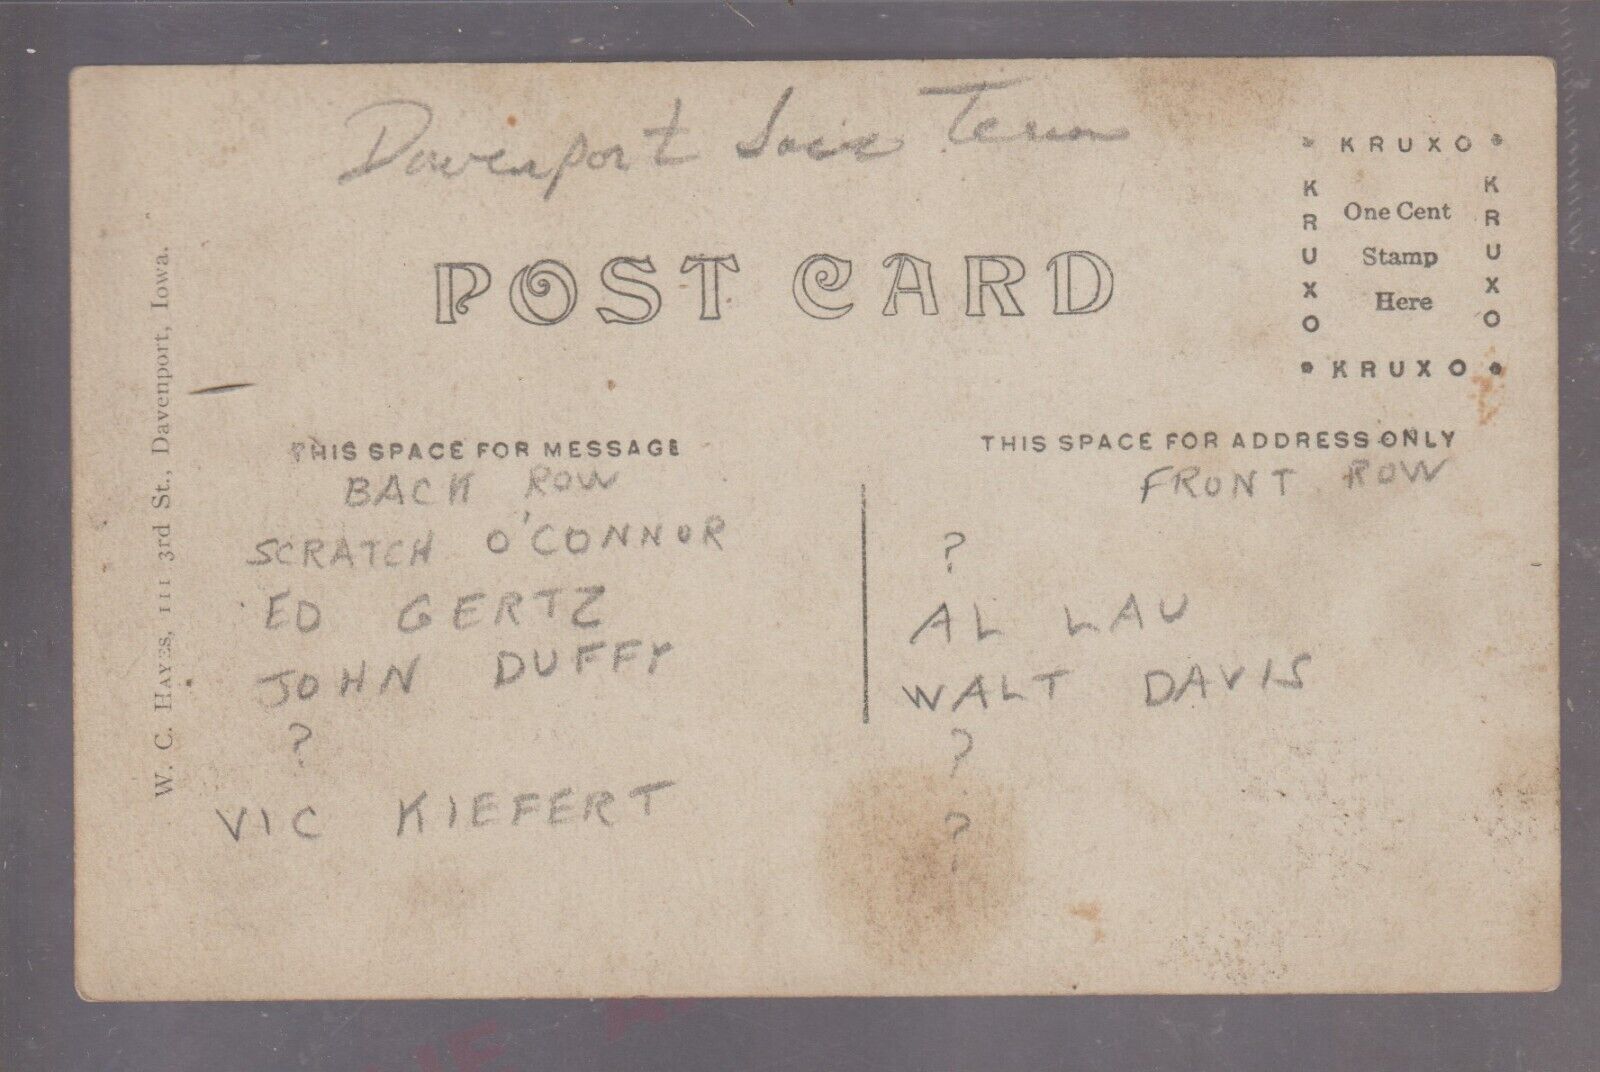 Davenport Iowa Team
POST CARD
KRUXO
KRUXO
One Cent
Stamp
Here
KRUXO
KRUXO
W. C. HAYES, 111 3rd St., Davenport, Iowa.
THIS SPACE FOR MESSAGE
BACK ROW
SCRATCH O'CONNOR
ED GERTZ
JOHN DUFFY
?
VIC KIEFERT
THIS SPACE FOR ADDRESS ONLY
FRONT ROW
?
AL LAU
WALT DAVIS
?
?